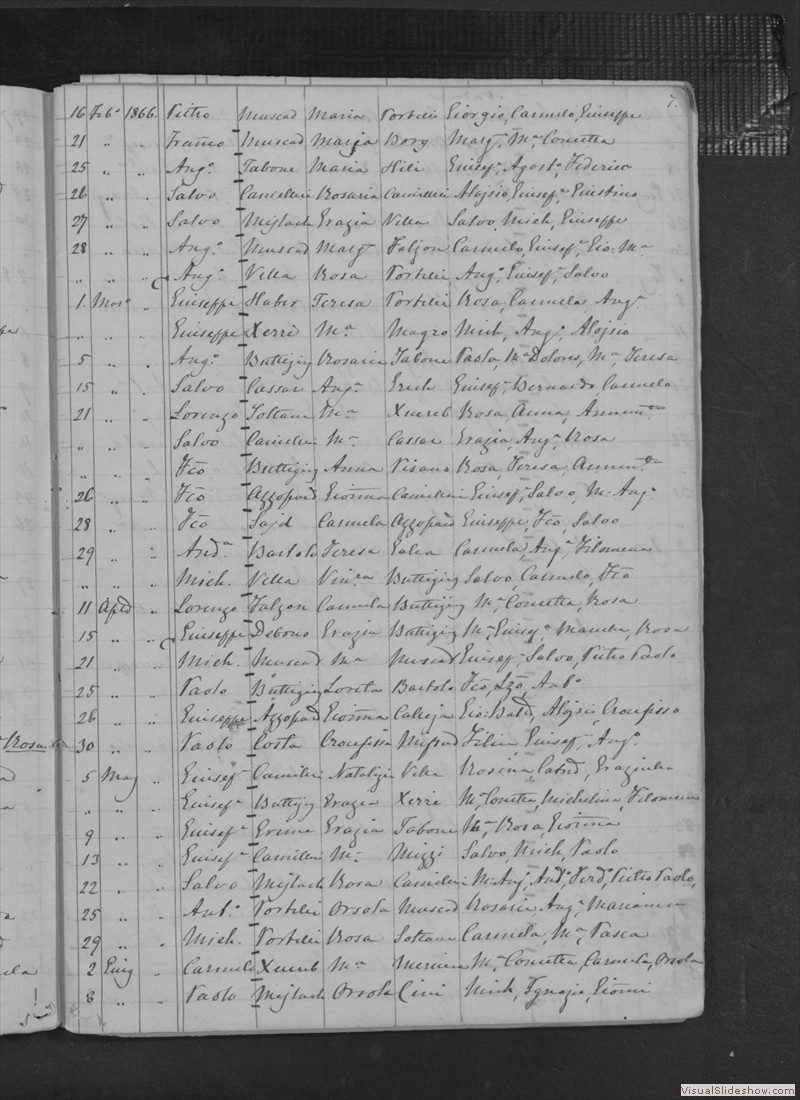 7.
16 Feb.o 1866. Pietro Muscad Maria Portelli Giorgio, Carmelo, Giuseppe
21 " " Franco Muscad Maria Borg Marg.a, M.a Concetta
25 " " Ang.o Tabone Maria Hili Giusef.a, Agost.o, Federico
26 " " Salvo Camilleri Rosaria Camilleri Alojsio, Giusef.a, Giustino
27 " " Salvo Mijsach Grazia Vella Salvo, Mich, Giuseppe
28 " " Ang.o Muscad Marg.a Falzon Carmelo, Giusef.e, Gio: M.a
" " " Ang.o Vella Rosa Portelli Ang.o, Giusef.e, Salvo
1. Marzo " Giuseppe Haber Teresa Portelli Rosa, Carmela, Ang.a
" " " Giuseppe Xerri M.a Magro Mich, Ang.o, Alojsio
5 " " Ang.o Buttigieg Rosaria Tabone Paola, M.a Dolores, M.a Teresa
15 " " Salvo Cassar Ang.a Grech Giusef.e, Bernardo, Carmelo
21 " " Lorenzo Soltana M.a Xuereb Rosa, Anna, Annun.ta
" " " Salvo Camilleri M.a Cassar Grazia, Ang.a, Rosa
" " " Fco Buttigieg Anna Pisana Rosa, Teresa, Annun.ta
26 " " Fco Azzopard Gioanna Camilleri Giusef.e, Salvo, M: Ang.o
28 " " Fco Sajd Carmela Azzopard Giuseppe, Fco, Salvo
29 " " And.a Bartolo Teresa Galea Carmela, Ang.a, Filomena
" " " Mich. Vella Vin.za Buttigieg Salvo, Carmelo, Fco
11 April " Lorenzo Falzon Carmela Buttigieg M.a Concetta, Rosa
15 " " Giuseppe Debono Grazia Buttigieg M.a Giusef.a, Rosa
21 " " Mich. Muscad M.a Muscad Giusef.e, Salvo, Pietro Paolo
25 " " Paolo Buttigieg Loreta Bartolo Fco, Lzo, Ant.o
26 " " Giuseppe Azzopard Gioanna Calleja Gio: Batta, Alojsio, Crocifisso
30 " " Paolo Costa Crocifissa Mifsud Giusef.e, Ang.o
5 Mag " Giusef.e Camilleri Natalizia Vella Rosina, Graziella
" " " Giusef.e Buttigieg Grazia Xerri M.a Concetta, Michelina, Filomena
9 " " Giusef.e Grazia Tabone M.a Rosa, Gioanna
13 " " Giusef.e Camilleri M.a Mizzi Salvo, Mich, Paolo
22 " " Salvo Mijsach Rosa Camilleri M: Ang.o, And.a, Ferd.o, Pietro Paolo,
25 " " Ant.o Portelli Orsola Muscad Rosaria, Ang.a, Marianna
29 " " Mich. Portelli Rosa Soltana Carmela, M.a, Pasca
2 Giug " Carmelo Xuereb M.a M.a Concetta, Carmela, Orsola
8 " " Paolo Mijsach Orsola Cini Mich, Ignazio, Gioanni
Rosa
VisualSlideshow.com